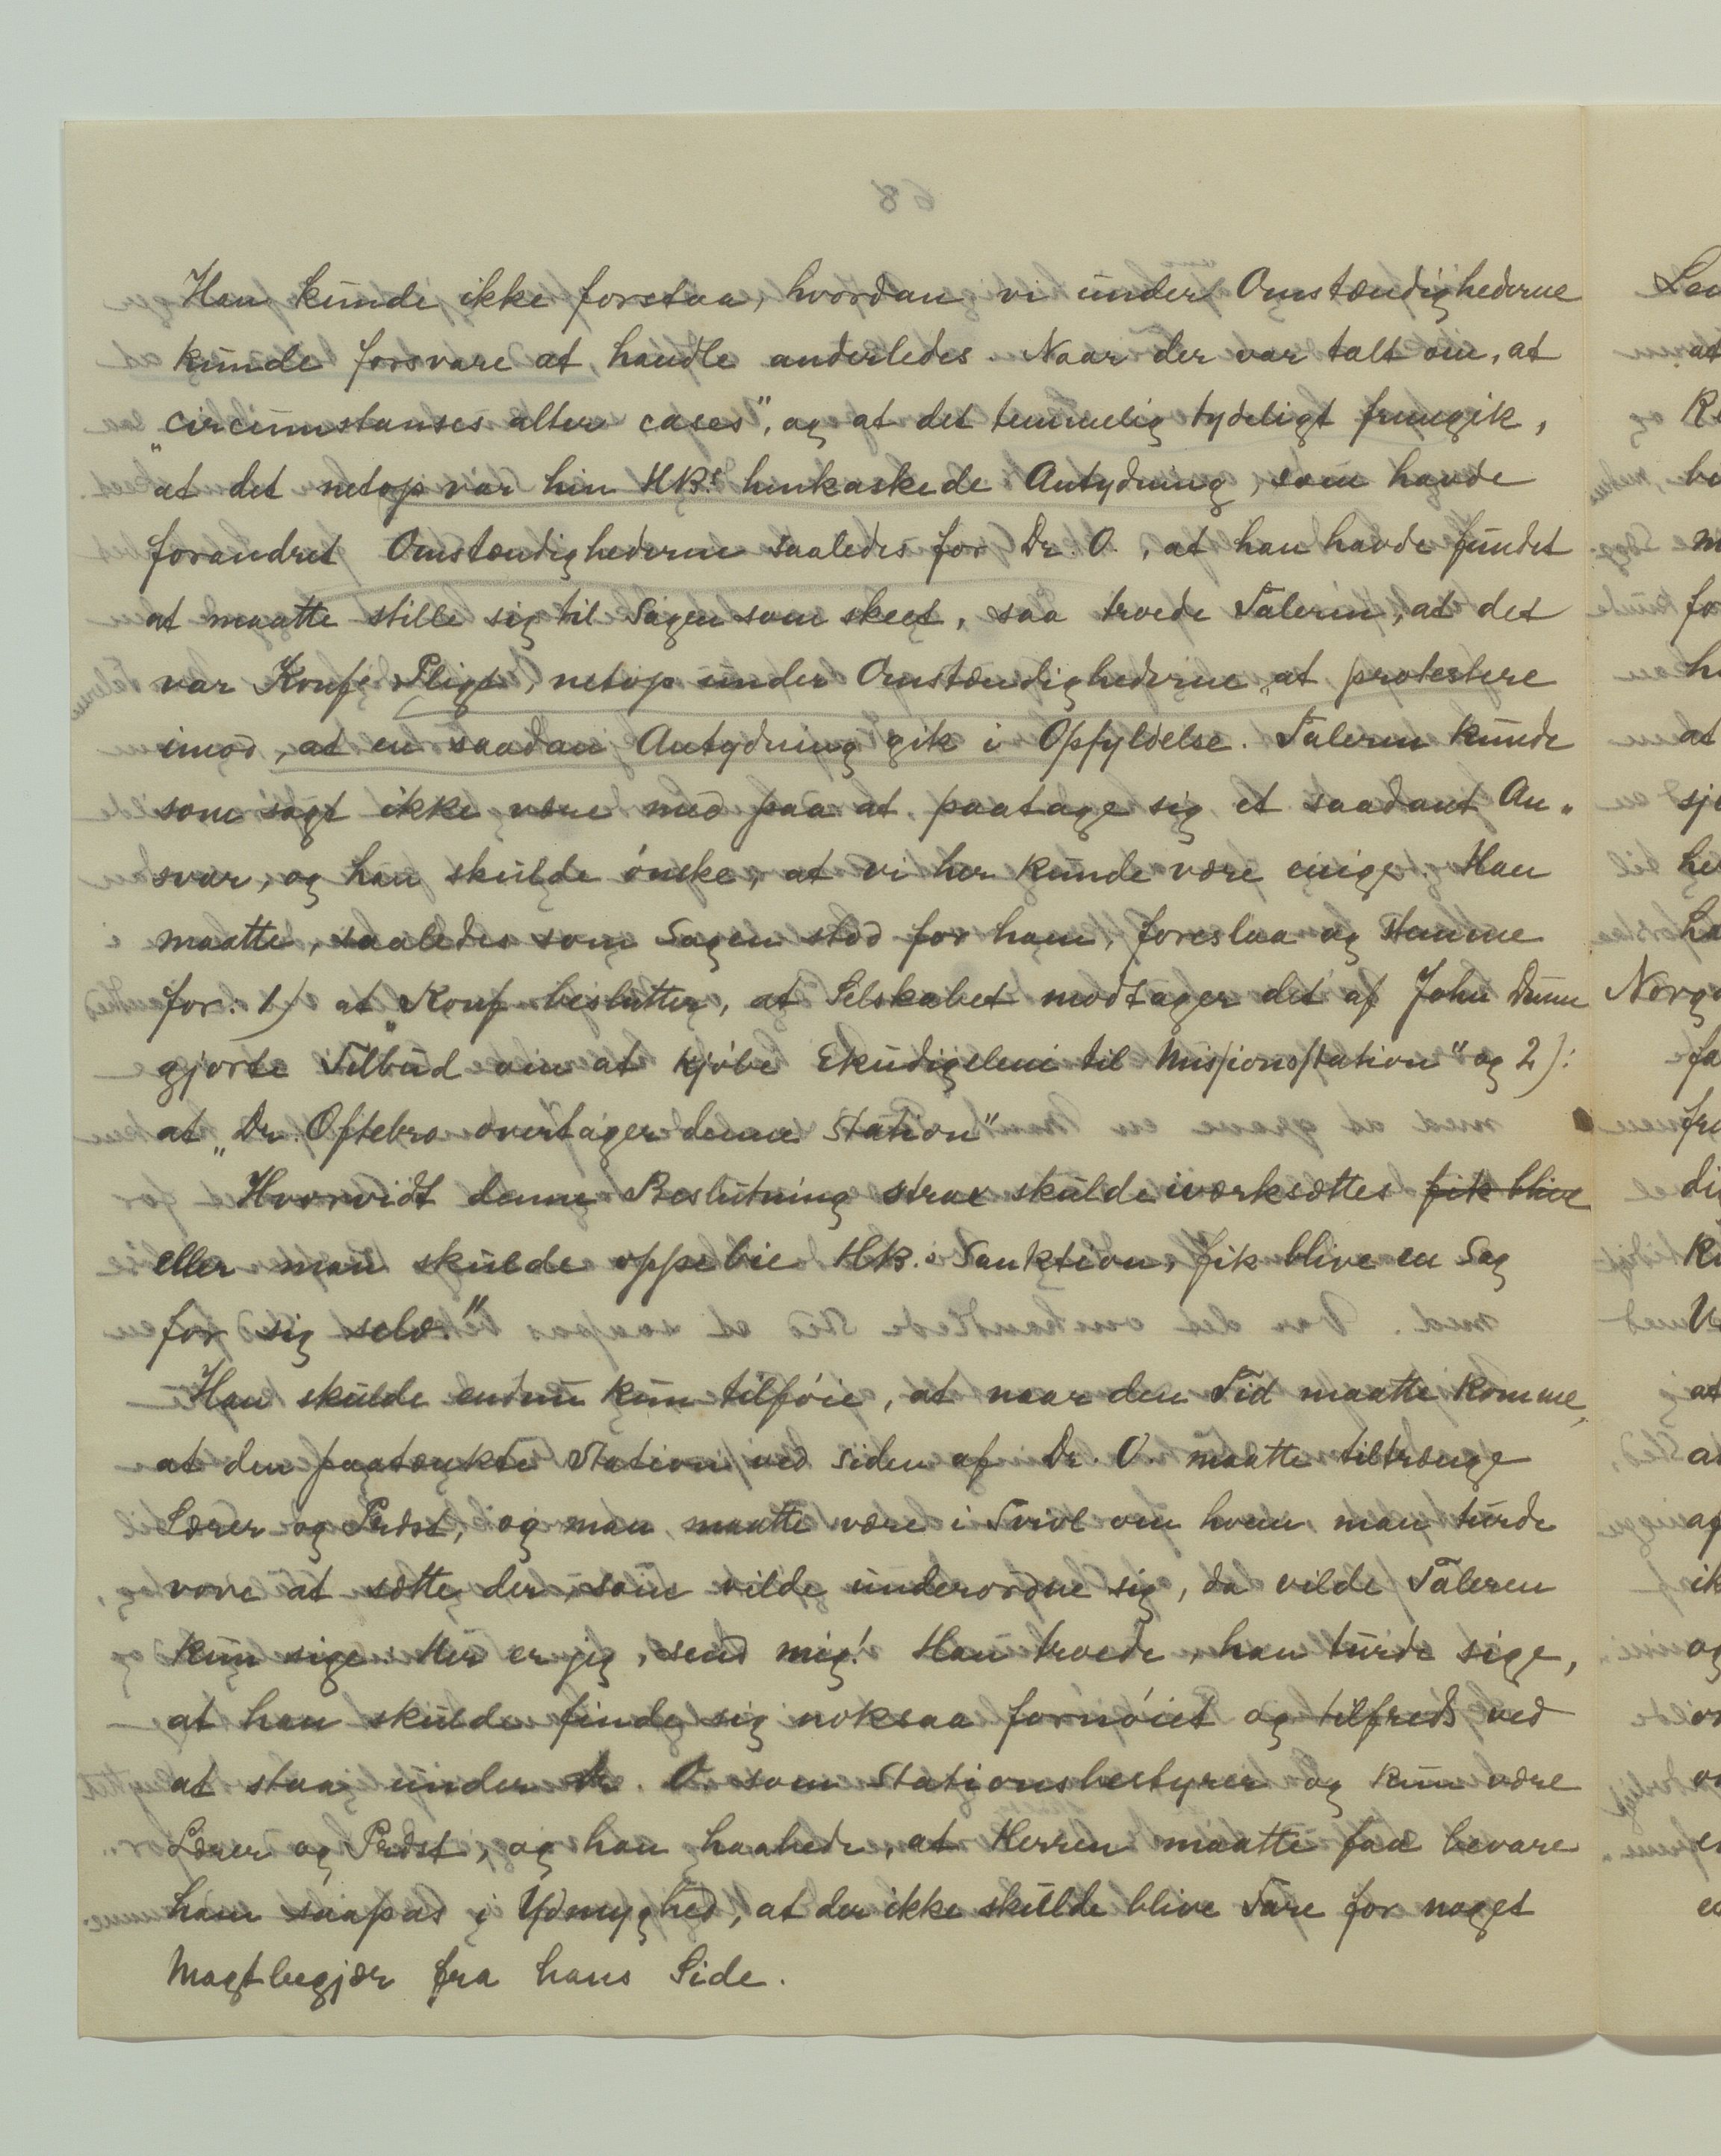 Han kunde ikke forstaa, hvordan vi under Omstændighederne
kunde forsvare at handle anderledes. Naar der var talt om, at
„circumstanses alter cases”, og at det temmelig tydeligt fremgik,
at det netop var hin HB.s henkastede Antydning, som havde
forandret Omstændighederne saaledes for Dr. O., at han havde fundet
at maatte stille sig til Sagen som skeet, saa troede Taleren, at det
var Konf. Pligt, netop under Omstændighederne at protestere
imod, at en saadan Antydning gik i Opfyldelse. Taleren kunde
som sagt ikke være med paa at paatage sig et saadant An-
svar, og han skulde ønske, at vi her kunde være enige. Han
maatte, saaledes som Sagen stod for ham, foreslaa og stemme
for: 1) at „Konf beslutter, at Selskabet modtager det af John Dunn
gjorte Tilbud om at kjøbe Ekudigeleni til Missionsstation“ og 2):
at „Dr. Oftebro overtager denne Station”
Hvorvidt denne Beslutning strax skulde iværksættes fik blive
eller man skulde oppebie HB.s Sanktion, fik blive en Sag
for sig selv.”
Han skulde endnu kun tilføie, at naar den Tid maatte komme,
at den paatænkte Station ved siden af Dr. O. maatte tiltrænge
Lærer og Præst, og man maatte være i Tvivl om hvem man turde
vove at sætte der, som vilde underordne sig, da vilde Taleren
kun sige: Her er jeg, send mig! Han troede, han turde sige,
at han skulde finde sig noksaa fornøiet og tilfreds ved
at staa under Dr. O. som Stationsbestyrer og kun være
Lærer og Præst, og han haabede, at Herren maatte faa bevare
ham saapas i Ydmyghed, at der ikke skulde blive Fare for noget
Magtbegjær fra hans Side.